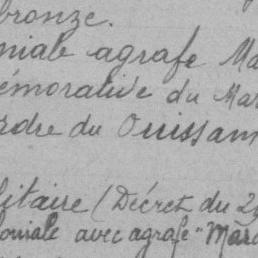 bronze.
niale agrafe Ma
émorative du Mar
rdre du Ouissam
litaire (Décret du 2
oniale avec agrafe "Maro